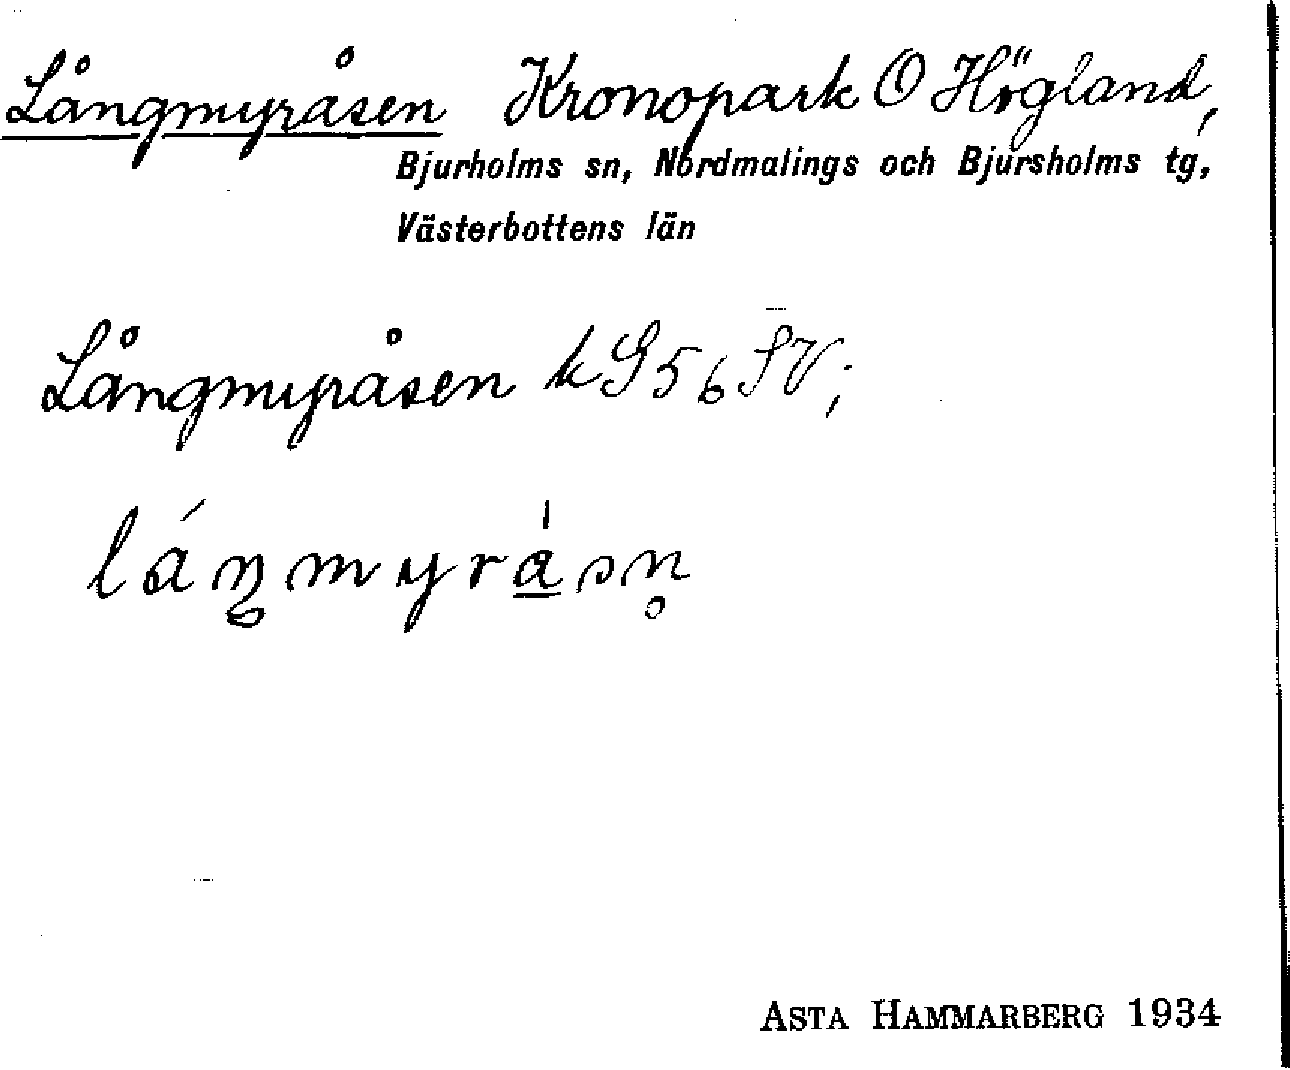 Långmyråsen Kronopark O Högland,
Bjurholms sn, Nordmalings och Bjursholms tg,
Västerbottens län
Långmyråsen k G56 SV;
láŋmyra̲̍sn̥
ASTA HAMMARBERG 1934